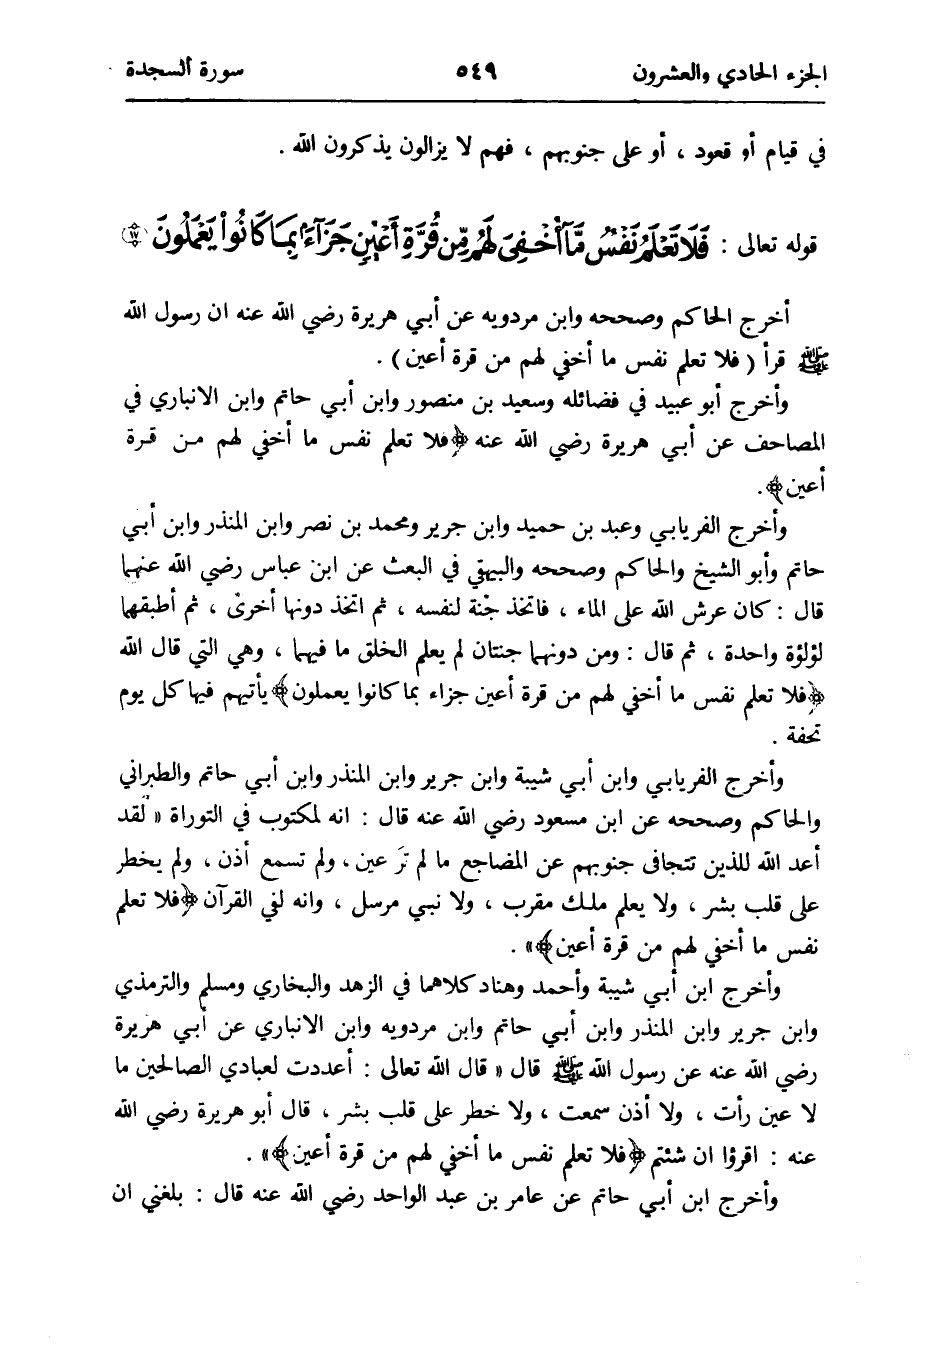 الجزء الحادي والعشرون ٥٤٩ سورة السجدة
في قيام أو قعود ، أو على جنوبهم ، فهم لا يزالون يذكرون الله .
قوله تعالى : فَلَا تَعْلَمُ نَفْسٌ مَّآ أُخْفِىَ لَهُم مِّن قُرَّةِ أَعْيُنٍ جَزَآءَۢ بِمَا كَانُوا۟ يَعْمَلُونَ ١٧
أخرج الحاكم وصححه وابن مردويه عن أبي هريرة رضي الله عنه ان رسول الله
ﷺ قرأ ( فلا تعلم نفس ما أخفي لهم من قرة أعين ) .
وأخرج أبو عبيد في فضائله وسعيد بن منصور وابن أبي حاتم وابن الانباري في
المصاحف عن أبي هريرة رضي الله عنه ﴿فلا تعلم نفس ما أخفي لهم من قرة
أعين﴾.
وأخرج الفريابي وعبد بن حميد وابن جرير ومحمد بن نصر وابن المنذر وابن أبي
حاتم وأبو الشيخ والحاكم وصححه والبيهقي في البعث عن ابن عباس رضي الله عنهما
قال : كان عرش الله على الماء ، فاتخذ جْنة لنفسه ، ثم اتخذ دونها أخرىْ ، ثم أطبقهما
لؤلؤة واحدة ، ثم قال : ومن دونهما جنتان لم يعلم الخلق ما فيهما ، وهي التي قال الله
﴿فلا تعلم نفس ما أخفي لهم من قرة أعين جزاء بما كانوا يعملون﴾ يأتيهم فيها كل يوم
تحفة .
وأخرج الفريابي وابن أبي شيبة وابن جرير وابن المنذر وابن أبي حاتم والطبراني
والحاكم وصححه عن ابن مسعود رضي الله عنه قال : انه لمكتوب في التوراة « لقد
أعد الله للذين تتجافى جنوبهم عن المضاجع ما لم تَر عين ، ولم تسمع أذن ، ولم يخطر
على قلب بشر ، ولا يعلم ملك مقرب ، ولا نبي مرسل ، وانه لفي القرآن ﴿فلا تعلم
نفس ما أخفي لهم من قرة أعين﴾» .
وأخرج ابن أبي شيبة وأحمد وهناد كلاهما في الزهد والبخاري ومسلم والترمذي
وابن جرير وابن المنذر وابن أبي حاتم وابن مردويه وابن الانباري عن أبي هريرة
رضي الله عنه عن رسول الله ﷺ قال « قال الله تعالى : أعددت لعبادي الصالحين ما
لا عين رأت ، ولا أذن سمعت ، ولا خطر على قلب بشر ، قال أبو هريرة رضي الله
عنه : اقرؤا ان شئتم ﴿فلا تعلم نفس ما أخفي لهم من قرة أعين﴾» .
وأخرج ابن أبي حاتم عن عامر بن عبد الواحد رضي الله عنه قال : بلغني ان